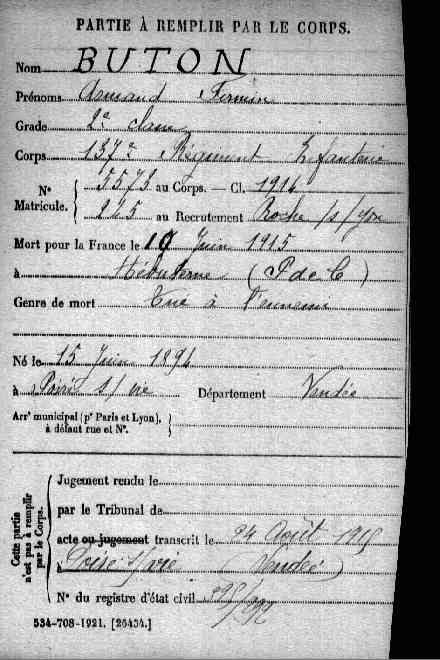 PARTIE À REMPLIR PAR LE CORPS.
Nom BUTON
Prénoms Armand Firmin
Grade 2e classe
Corps 137e Régiment Infanterie
Nº Matricule. 5573 au Corps. — Cl. 1914
225 au Recrutement Roche s/Yon
Mort pour la France le 10 Juin 1915
à Hébuterne (P de C)
Genre de mort Tué à l'ennemi
Né le 15 Juin 1894
à Poiré s/ vie Département Vendée
Arrt municipal (pr Paris et Lyon),
à défaut rue et Nº.
Cette partie
n'est pas à remplir
par le Corps.
Jugement rendu le
par le Tribunal de
acte ou jugement transcrit le 24 Août
à Poiré s/vie Vendée)
Nº du registre d'état civil
534-708-1921. [26434.]